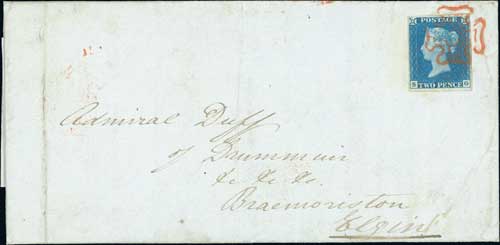 POSTAGE
S G
TWO PENCE
Admiral Duff
of Drummuir
&c &c &c
Braemoriston
Elgin